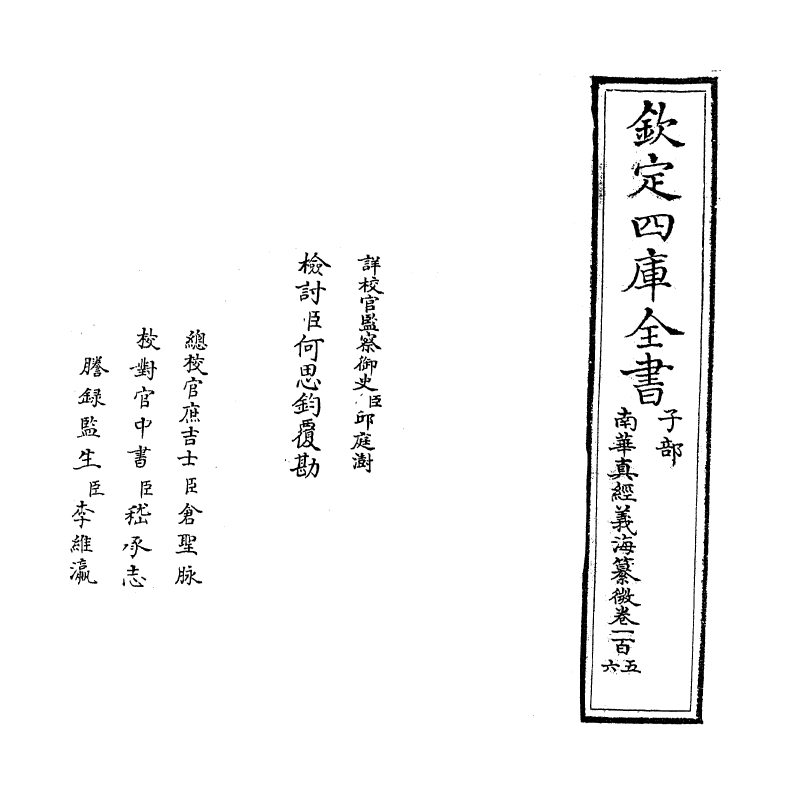 欽定四庫全書
子部
南華真經義海纂微卷一百五
六
詳校官監察御史臣邱庭澍
檢討臣何思鈞覆勘
總校官庶吉士臣倉聖脉
校對官中書臣嵇承志
謄錄監生臣李維瀛